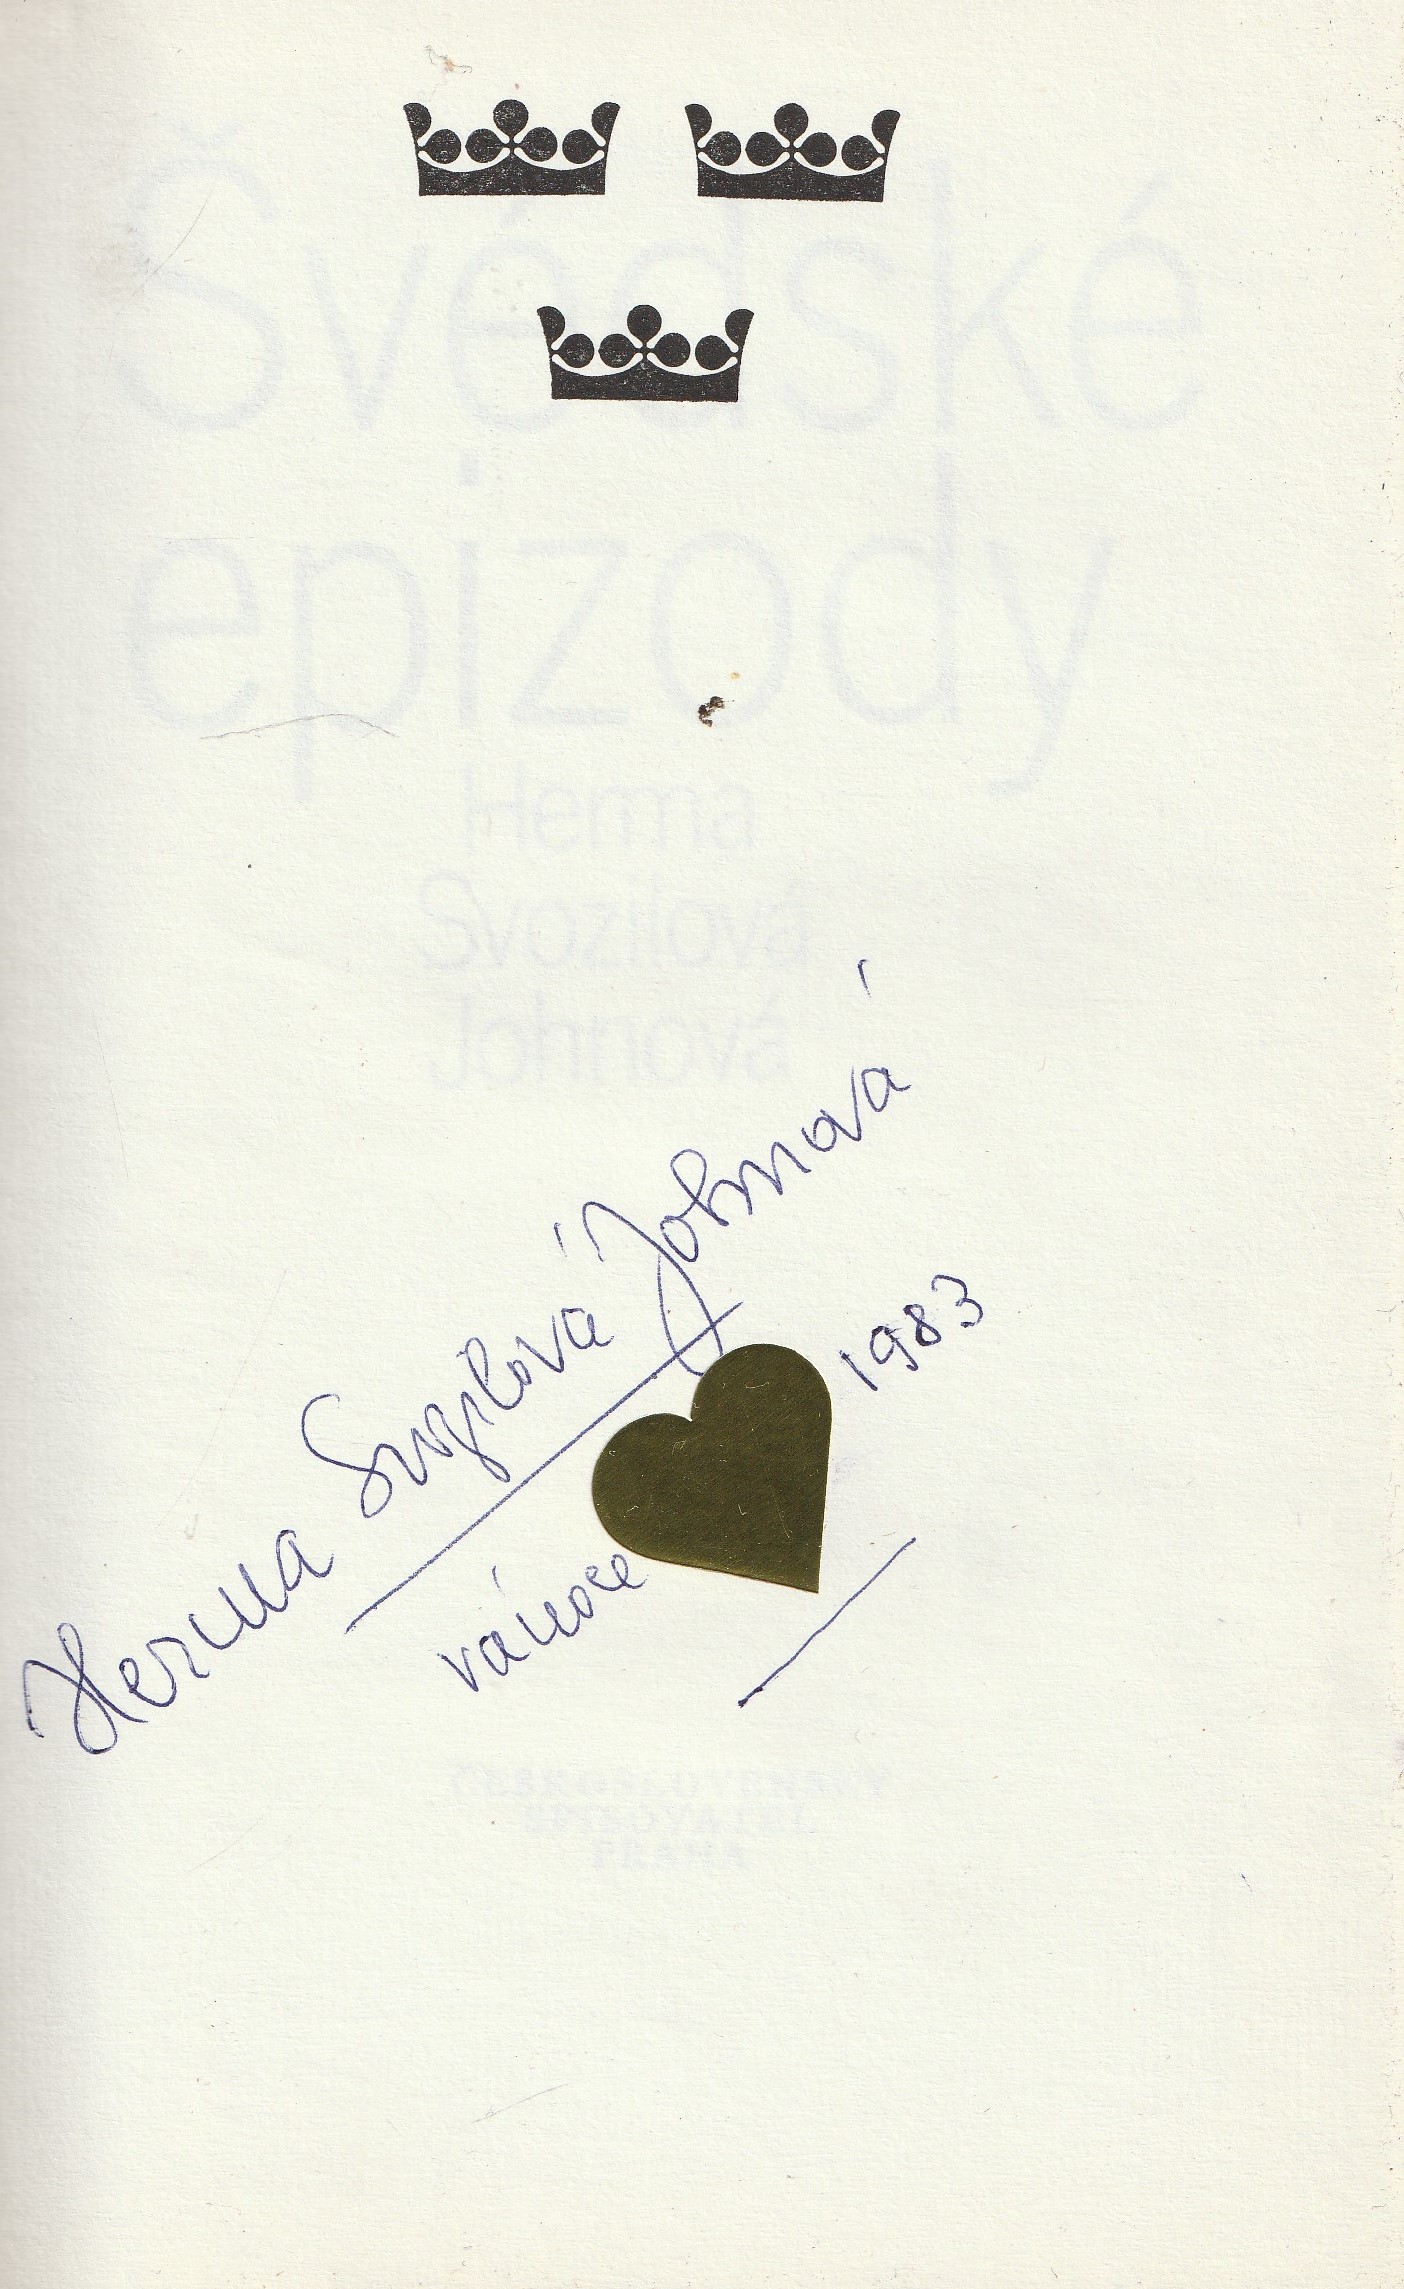 Švédské
epizody
Herma
Svozilová
Johnová
Herma Svozilová Johnová
vánoce 1983
ČESKOSLOVENSKÝ
SPISOVATEL
PRAHA